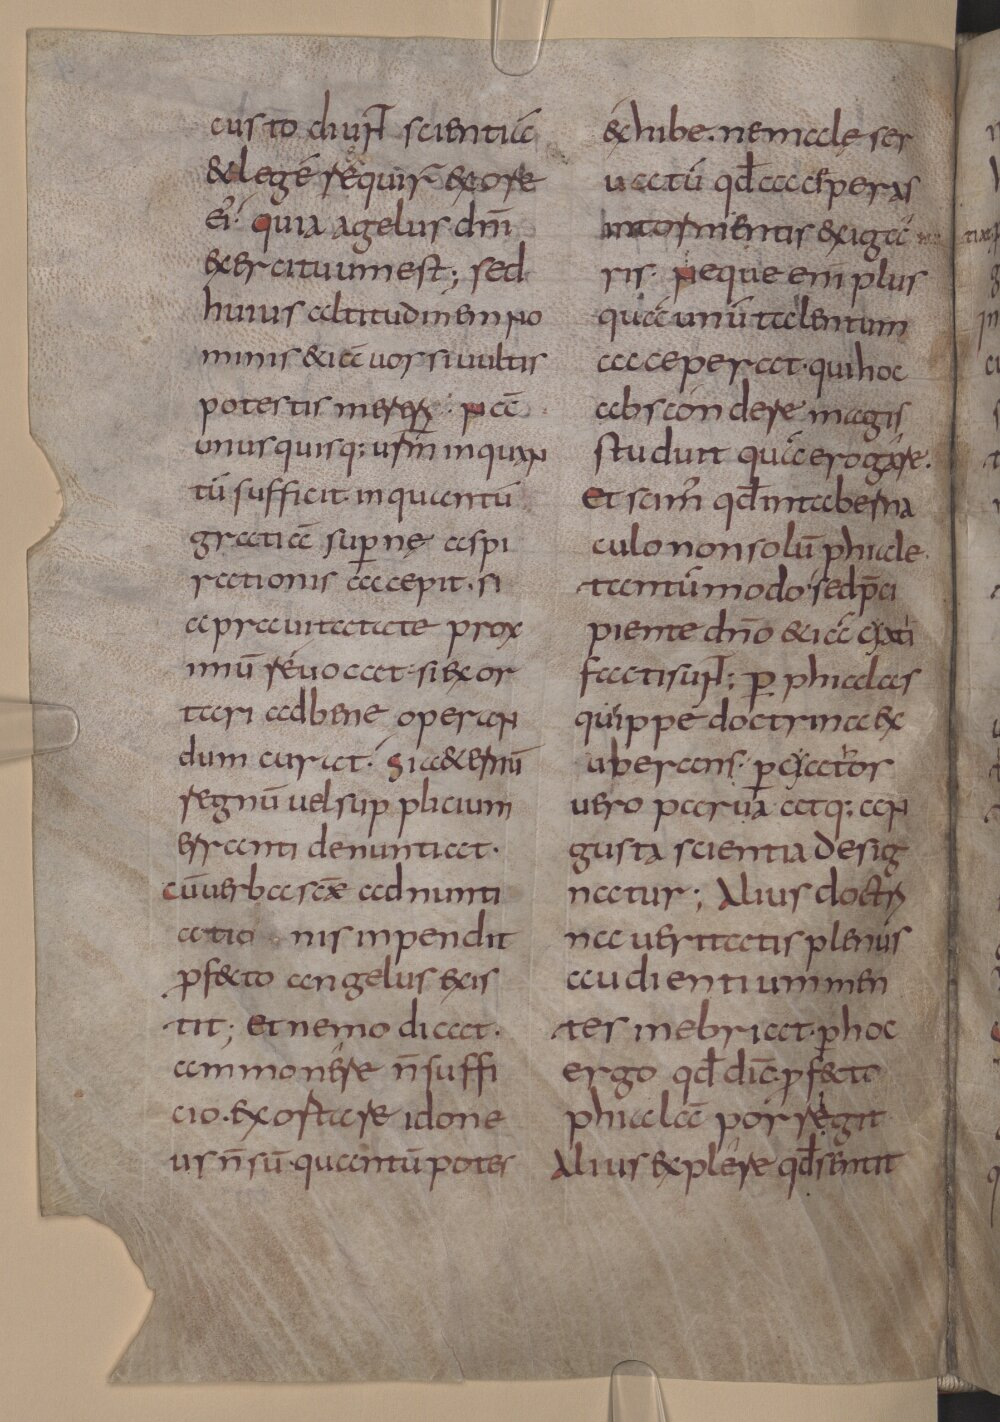 custodiunt scientiā
& legē requirt ex ore
ei᾽ quia angelus dn̄i
exercituum est; sed
huius altitudinem no
minis &iā uos si uultis
potestis mereri. nā
unusquisq: urm̄ inquan
tū sufficit. inquantū
gratiā supernę aspi
rationis accepit. si
a prauitate prox
imū reuocat. si exor
tari ad bene operan
dum curat. Si aeternū
regnū uel supplicium
erranti denuntiat.
cū uerba sc̄e adnunti
atio nis inpendit
ꝓfecto angelus exis
tit; Et nemo dicat.
ammonere n̄ suffi
cio. exortare idone
us n̄ sū. quantū potes
exhibe. ne malę ser
uatū qd̄ acceperas
in tormentis exiga
ris. Neque eni plus
quā unū talentum
acceperat. qui hoc
abscondere magis
studuit quā erogare.
Et scim᾽ qd̄ in taberna
culo non solū phiale
tantū modo sed p̄ci
piente dn̄o &iā cyati
facti sunt; ꝑ phialas
quippe doctrina ex
uberans. ꝑ cyatos
uero parua atq: an
gusta scientia desig
natur; Alius doctri
na ueritatis plenus
audientium men
tes inebriat. ꝑ hoc
ergo qd̄ dic̄. ꝓfecto
phialā porregit
Alius explere qd̄ sentit